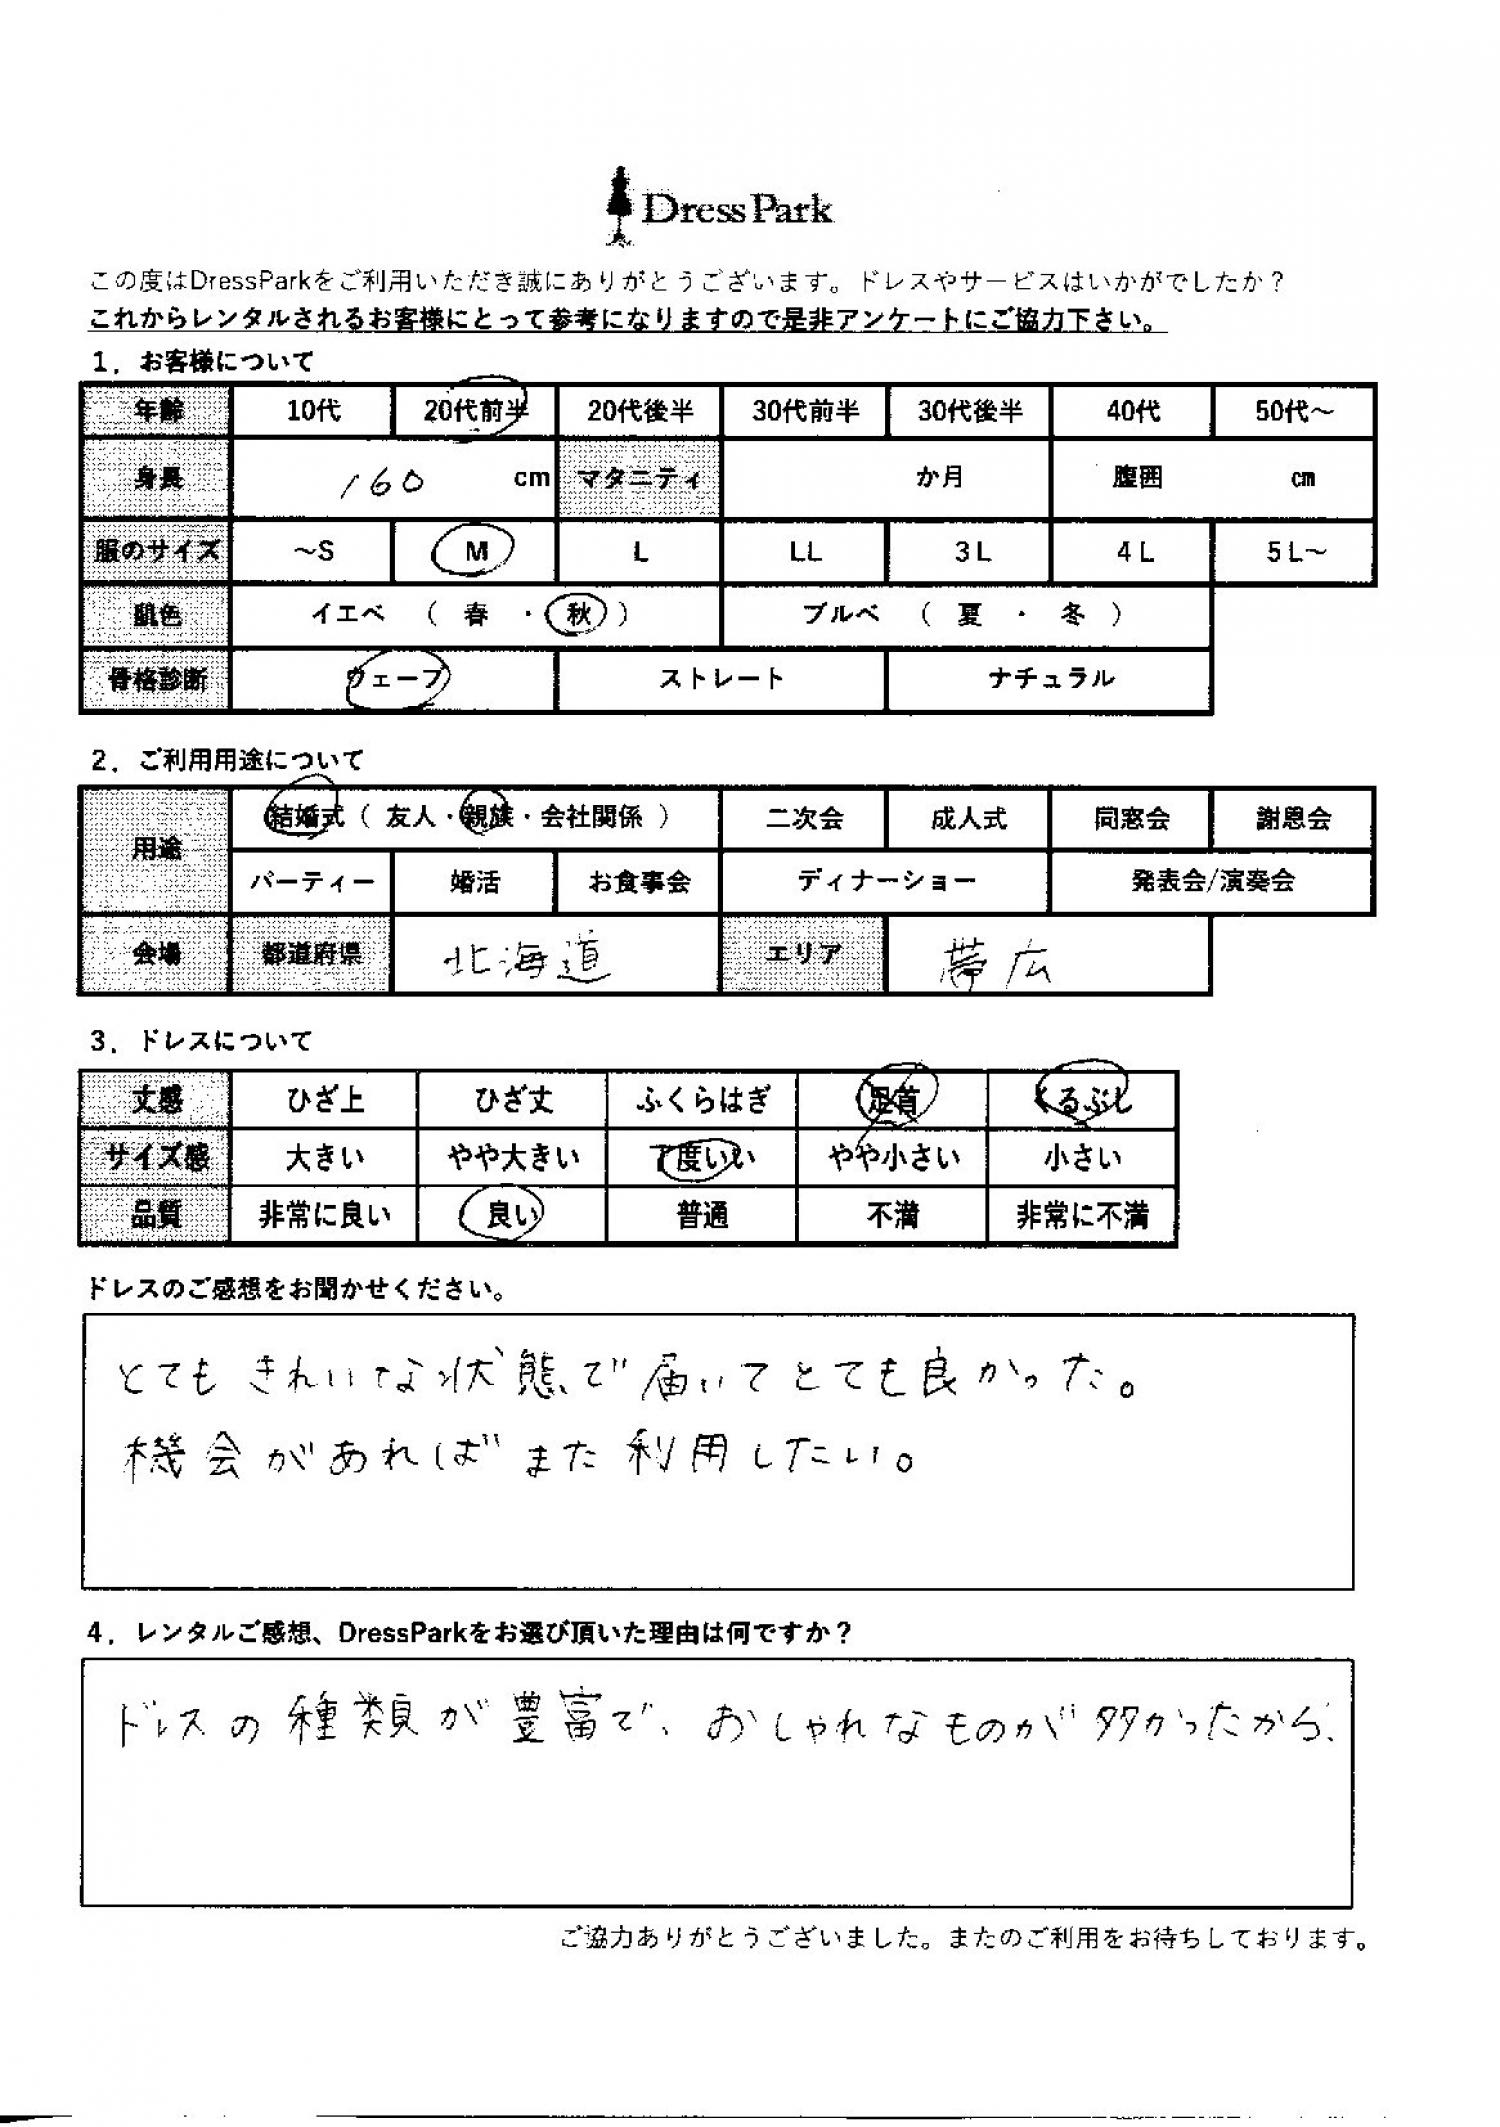 DressPark
この度はDressParkをご利用いただき誠にありがとうございます。ドレスやサービスはいかがでしたか？
これからレンタルされるお客様にとって参考になりますので是非アンケートにご協力下さい。
1．お客様について
年齢 10代 20代前半 20代後半 30代前半 30代後半 40代 50代～
身長 160 cm マタニティ か月 腹囲 ㎝
服のサイズ ～S M L LL 3L 4L 5L～
肌色 イエベ （ 春 ・ 秋 ） ブルベ （ 夏 ・ 冬 ）
骨格診断 ウェーブ ストレート ナチュラル
2．ご利用用途について
用途 結婚式（ 友人・親族・会社関係 ） 二次会 成人式 同窓会 謝恩会
パーティー 婚活 お食事会 ディナーショー 発表会/演奏会
会場 都道府県 北海道 エリア 帯広
3．ドレスについて
丈感 ひざ上 ひざ丈 ふくらはぎ 足首 くるぶし
サイズ感 大きい やや大きい 丁度いい やや小さい 小さい
品質 非常に良い 良い 普通 不満 非常に不満
ドレスのご感想をお聞かせください。
とてもきれいな状態で届いてとても良かった。
機会があればまた利用したい。
4．レンタルご感想、DressParkをお選び頂いた理由は何ですか？
ドレスの種類が豊富で、おしゃれなものが多かったから、
ご協力ありがとうございました。またのご利用をお待ちしております。